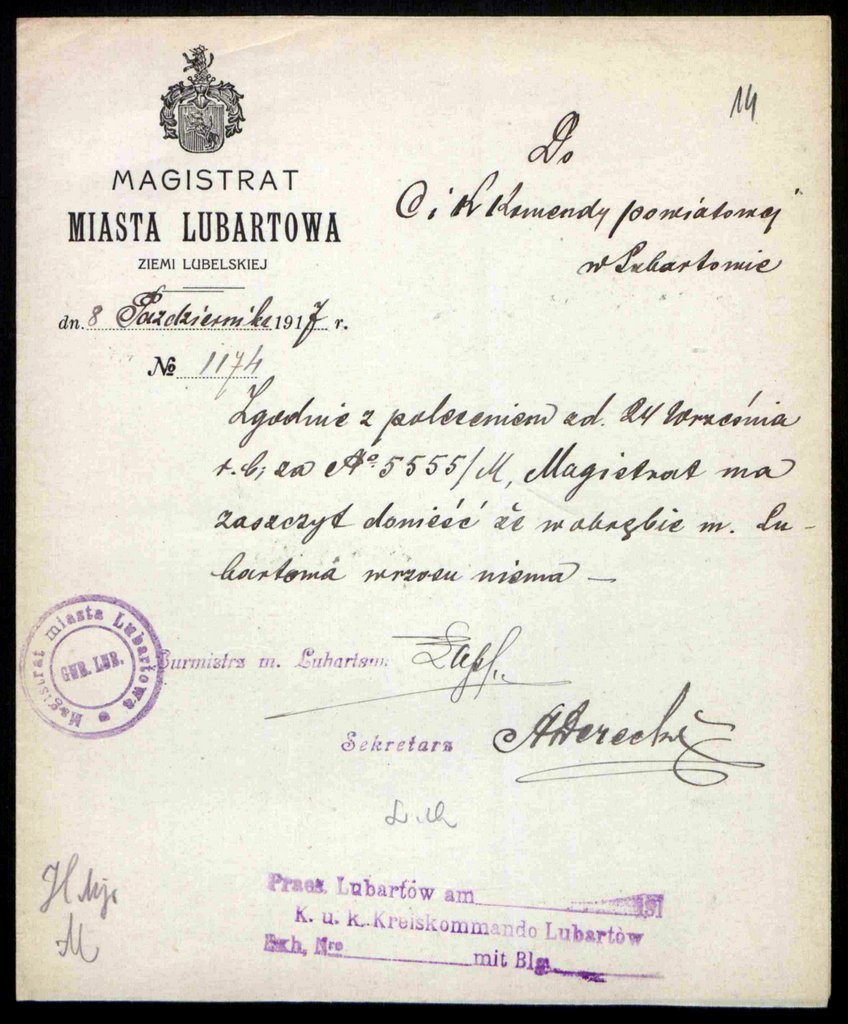 14
MAGISTRAT
MIASTA LUBARTOWA
ZIEMI LUBELSKIEJ
dn. 8 Października 1917 r.
№ 1174
Do
C i K Komendy powiatowej
w Lubartowie
Zgodnie z poleceniem z d. 24 Września
r. b; za № 5555/M, Magistrat ma
zaszczyt donieść że w obrębie m. Lu-
bartowa wrzosu niema —
Magistrat miasta Lubartowa
GUB. LUB.
Burmistrz m. Lubartowa
Sekretarz
Praes. Lubartów am 191
K. u. k. Kreiskommando Lubartów
Exh. Nro mit Blg.
M